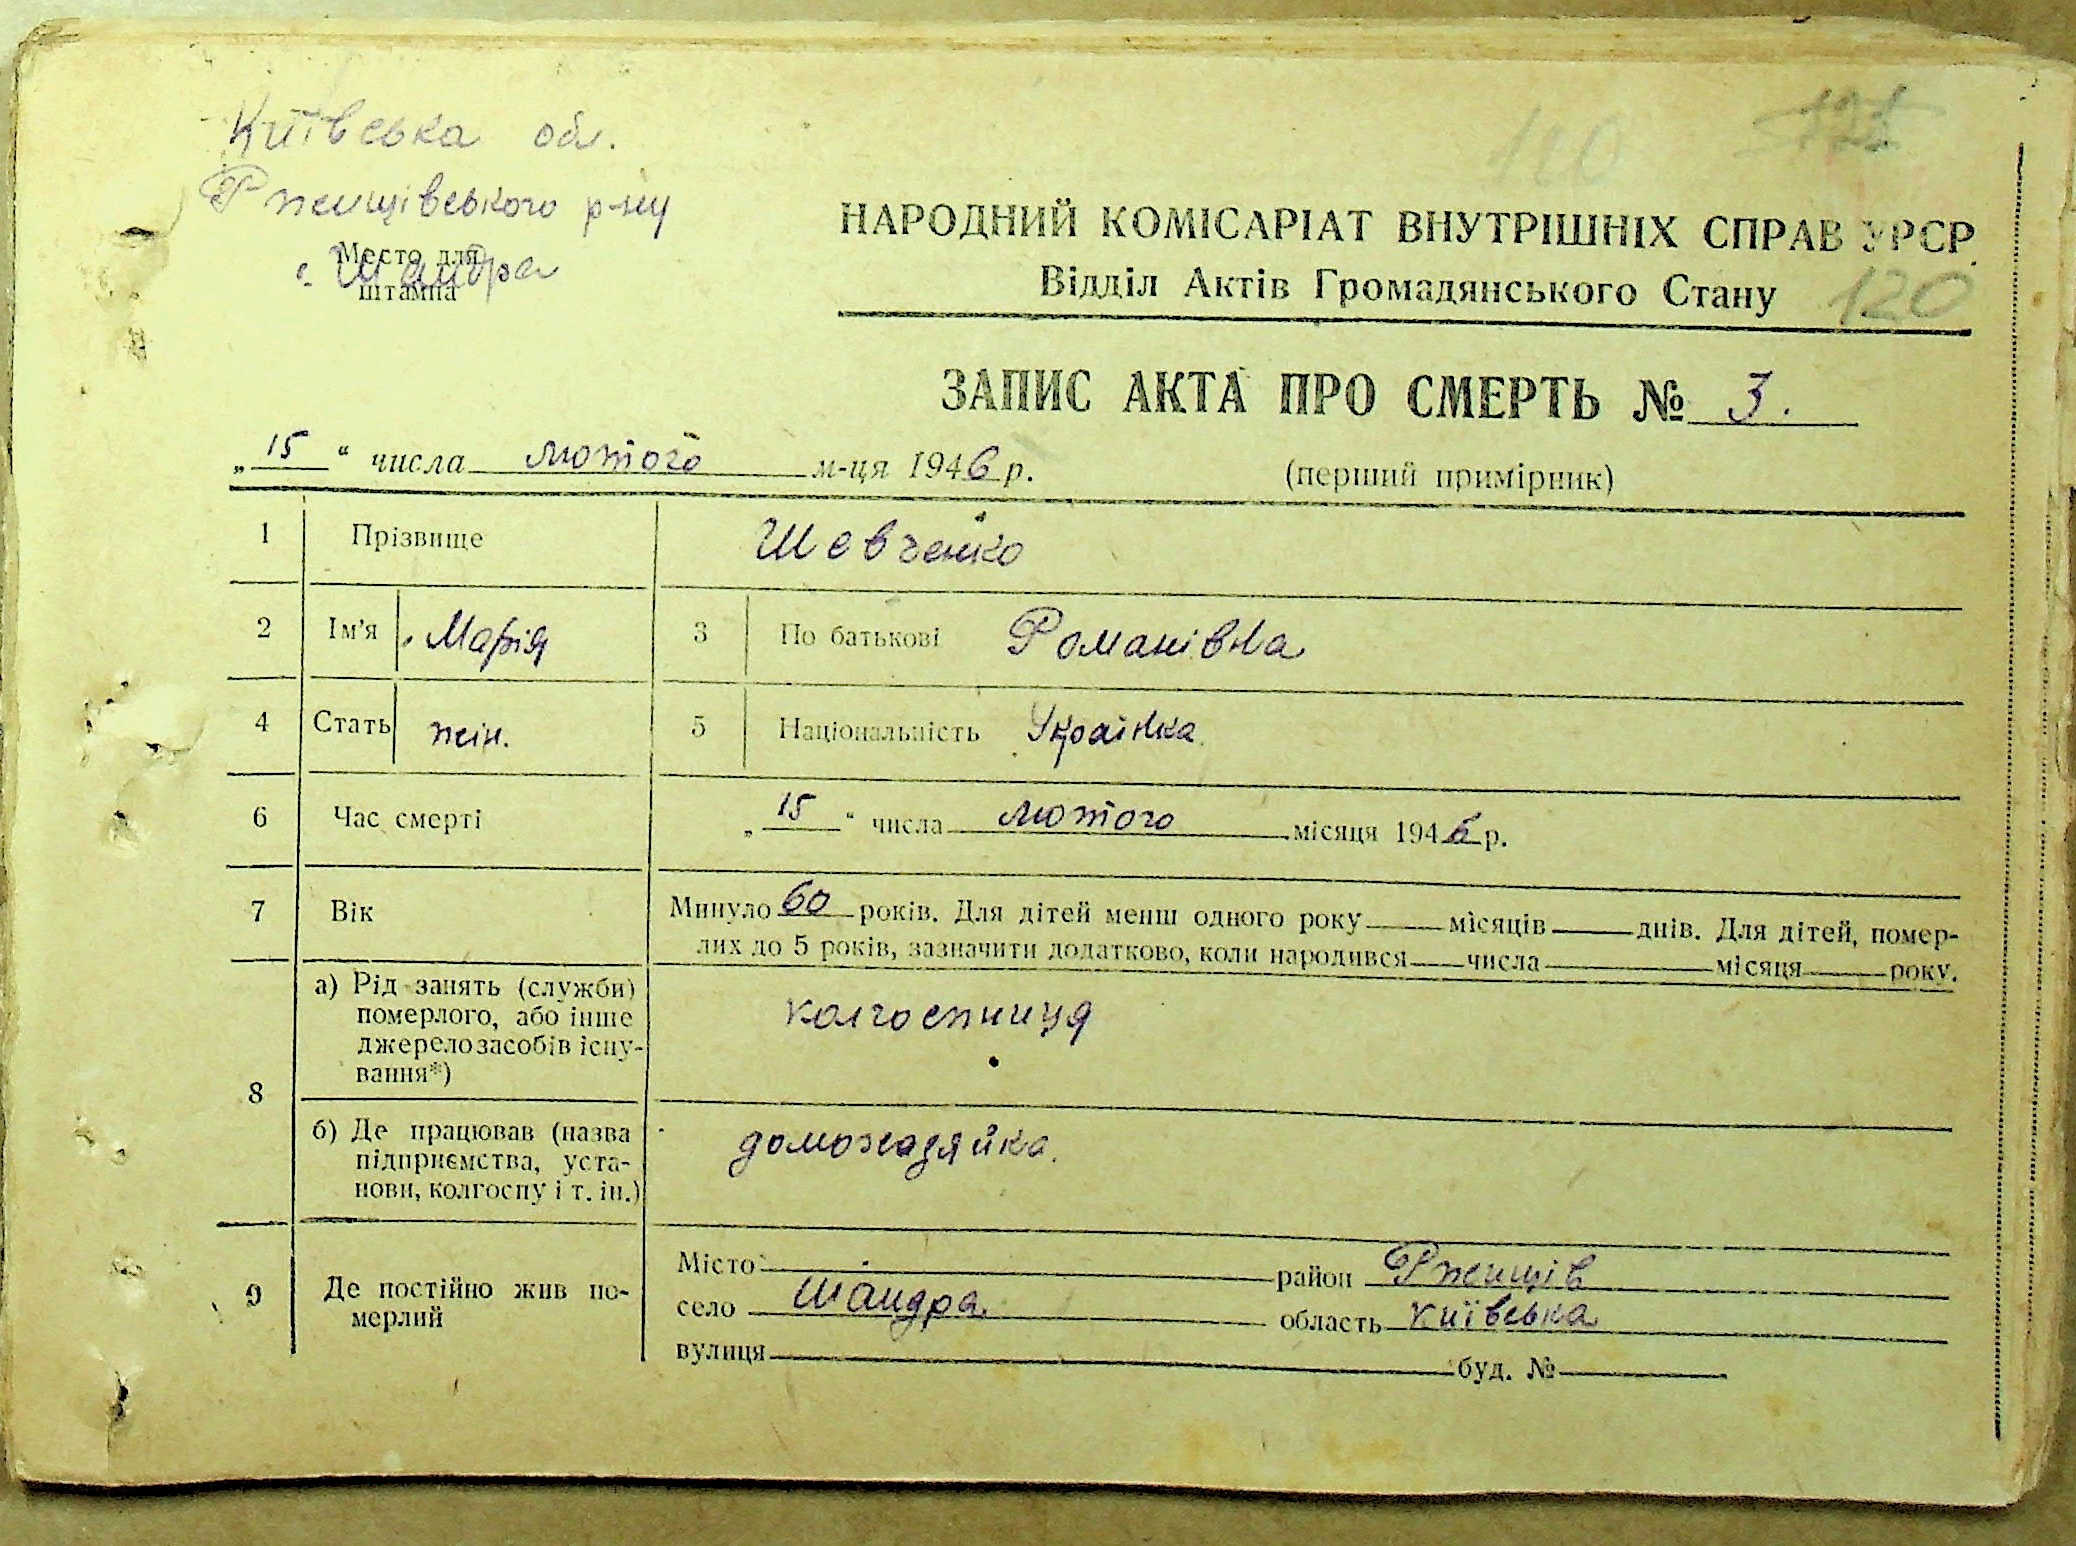 Київська обл.
Ржищівського р-ну
Место для
с. Шандра
штампа
120
НАРОДНИЙ КОМІСАРІАТ ВНУТРІШНІХ СПРАВ УРСР
Відділ Актів Громадянського Стану 120
ЗАПИС АКТА ПРО СМЕРТЬ № 3.
„15“ числа лютого м-ця 1946 р. (перший примірник)
1 Прізвище Шевченко
2 Ім'я Марія 3 По батькові Романівна
4 Стать жін. 5 Національність Українка
6 Час смерті „15“ числа лютого місяця 1946 р.
7 Вік Минуло 60 років. Для дітей менш одного року місяців днів. Для дітей, помер-
лих до 5 років, зазначити додатково, коли народився числа місяця року.
8 а) Рід занять (служби) колгоспниця
померлого, або інше
джерело засобів існу-
вання*)
б) Де працював (назва домохазяйка.
підприємства, уста-
нови, колгоспу і т. ін.)
9 Де постійно жив по-
мерлий
Місто район Ржищів
село Шандра область Київська
вулиця буд. №